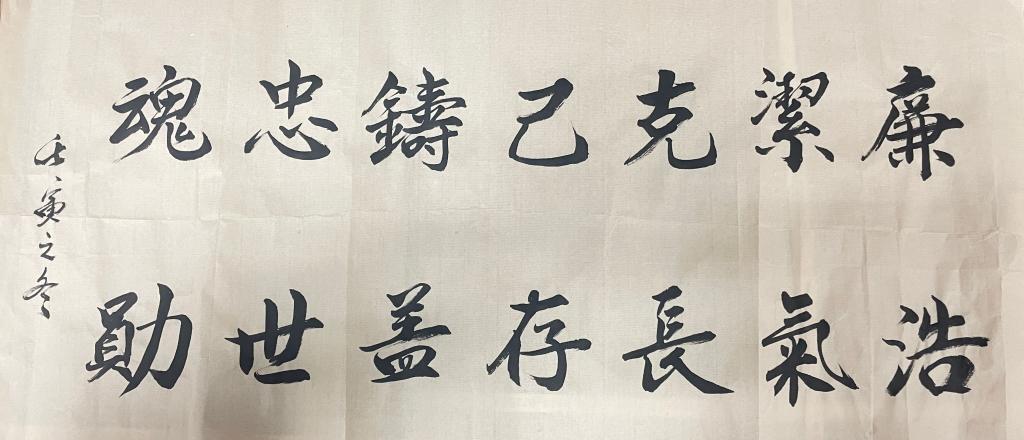 廉潔克己鑄忠魂
浩氣長存盖世勛
壬寅之冬